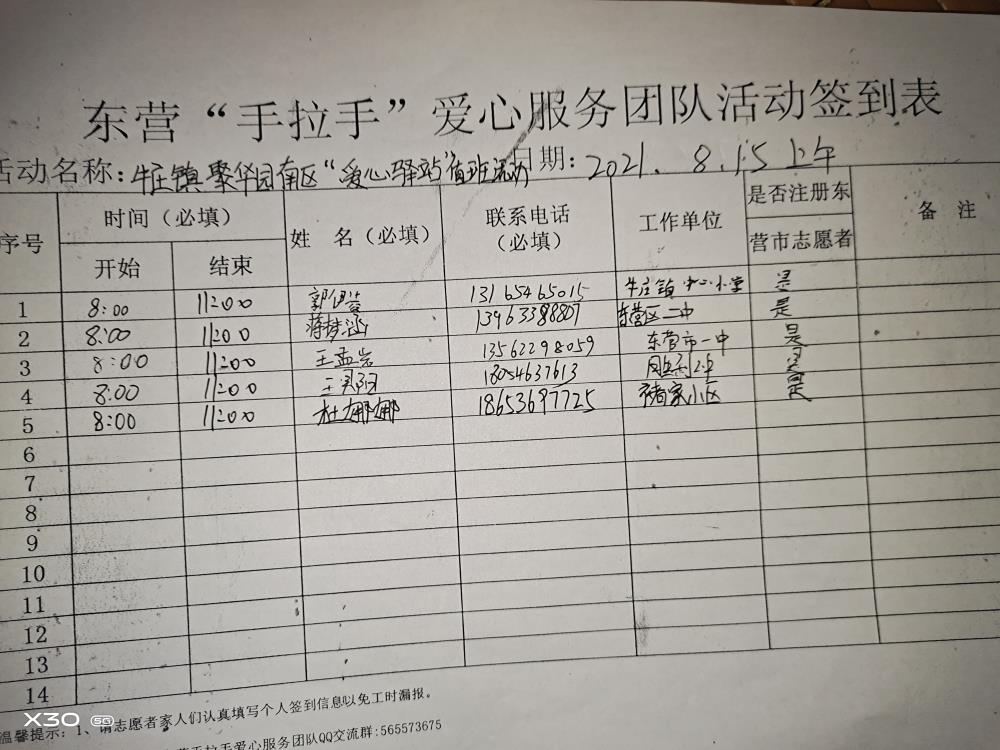 东营“手拉手”爱心服务团队活动签到表
活动名称:牛庄镇聚华园南区“爱心驿站”值班活动 日期: 2021. 8.15 上午
序号 时间（必填） 姓 名（必填） 联系电话（必填） 工作单位 是否注册东营市志愿者 备 注
开始 结束
1 8:00 11:00 郭伊蓉 13165465015 牛庄镇中心小学 是
2 8:00 11:00 蒋梦涵 13963388807 东营区二中 是
3 8:00 11:00 王孟岩 13562298059 东营市一中 是
4 8:00 11:00 18054637613 是
5 8:00 11:00 杜娜娜 18653697725 褚家小区 是
6
7
8
9
10
11
12
13
14
温馨提示: 1、请志愿者家人们认真填写个人签到信息以免工时漏报。
营手拉手爱心服务团队QQ交流群:565573675
X30 5G